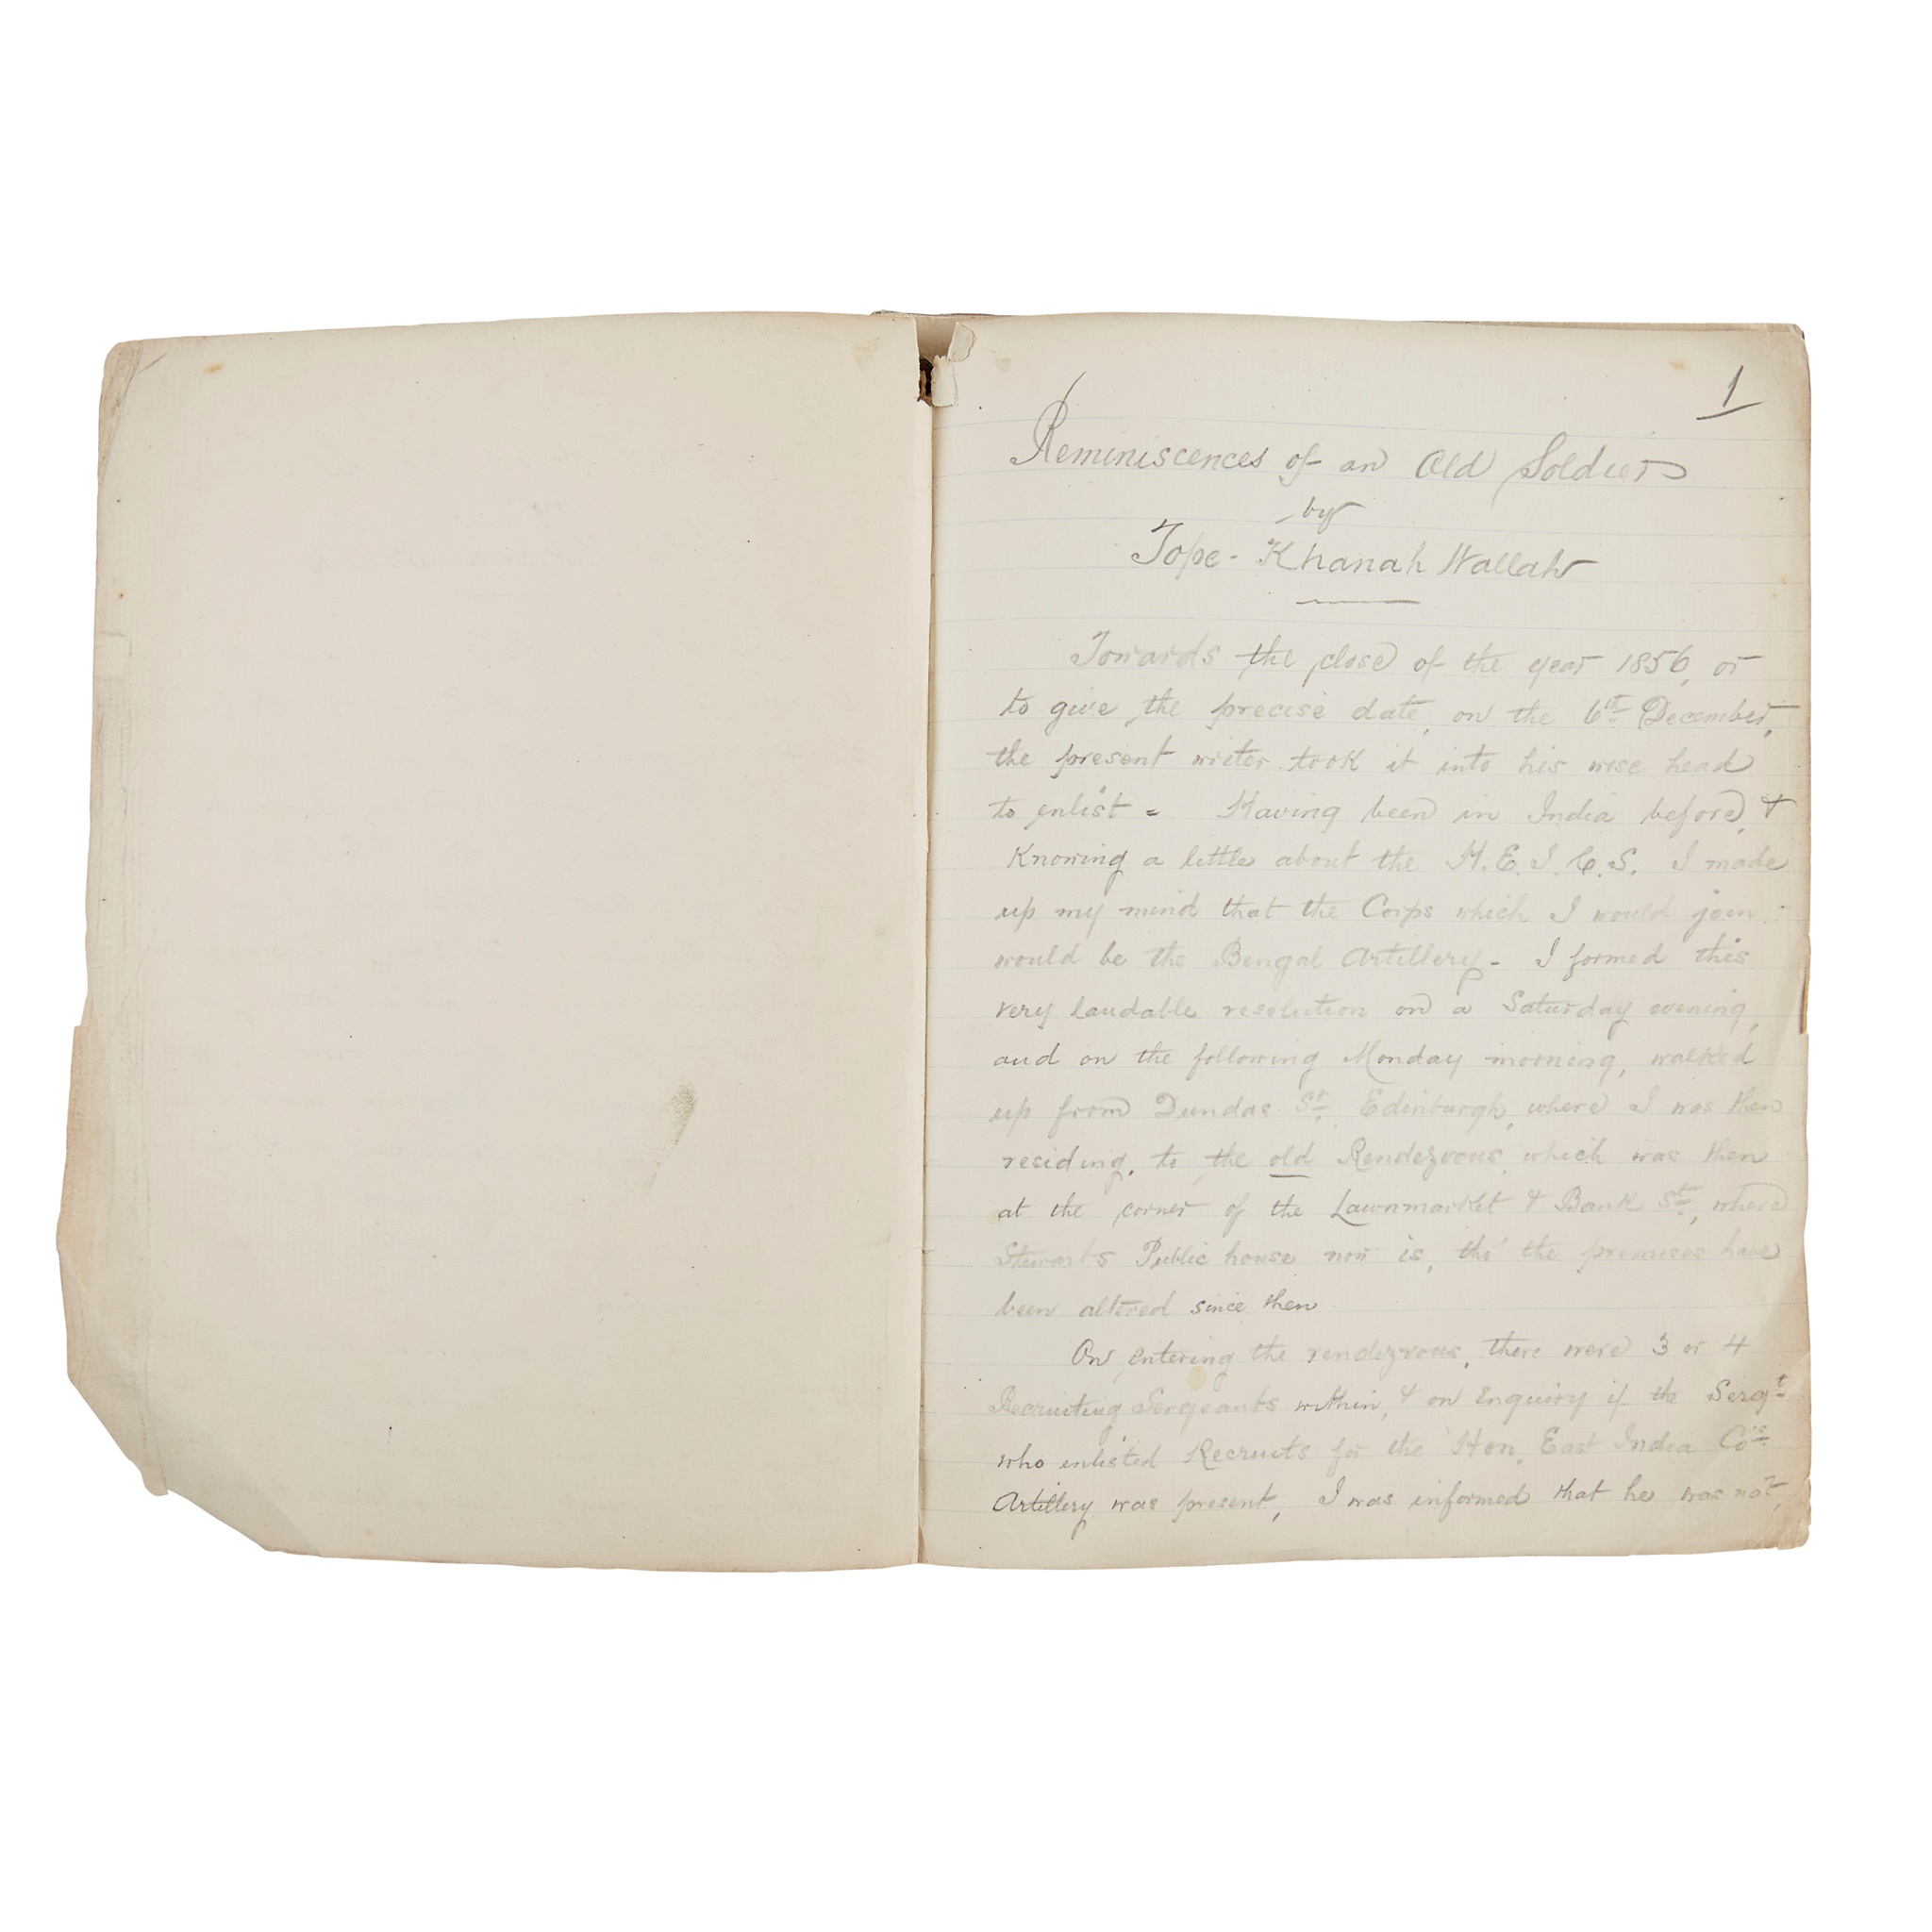 1
Reminiscences of an Old Soldier
by
Tope-Khanah Wallah
Towards the close of the year 1856, or
to give the precise date, on the 6th December,
the present writer took it into his wise head
to enlist - Having been in India before, &
Knowing a little about the H.E.I.C.S. I made
up my mind that the Corps which I would join
would be the Bengal Artillery - I formed this
very laudable resolution on a Saturday evening,
and on the following Monday morning, walked
up from Dundas St. Edinburgh, where I was then
residing, to the old Rendezvous, which was then
at the corner of the Lawnmarket & Bank St, where
Stewarts Public house now is, tho' the premises have
been altered since then
On entering the rendezvous, there were 3 or 4
Recruiting Sergeants within, & on Enquiry if the Sergt
who enlisted Recruits for the Hon. East India Co's
Artillery was present, I was informed that he was not,